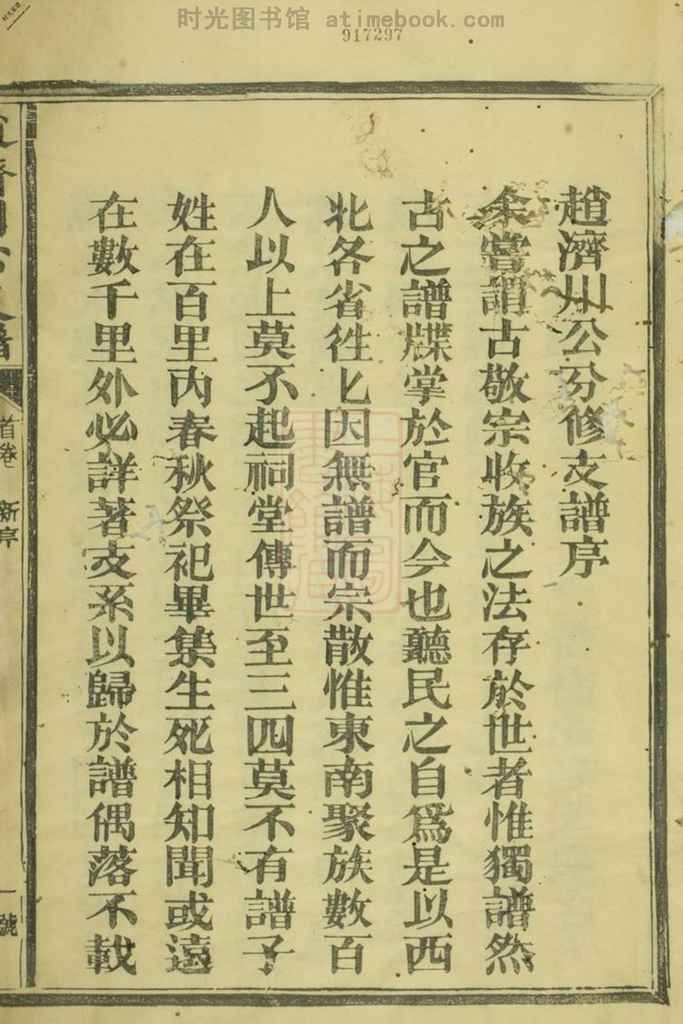 时光图书馆 atimebook.com
917297
趙濟川公分修支譜序
余嘗謂古敬宗收族之法存於世者惟獨譜然
古之譜牒掌於官而今也聽民之自爲是以西
北各省徃匕因無譜而宗散惟東南聚族數百
人以上莫不起祠堂傳世至三四莫不有譜子
姓在百里內春秋祭祀畢集生死相知聞或遠
在數千里外必詳著支系以歸於譜偶落不載
首卷 新序
一號